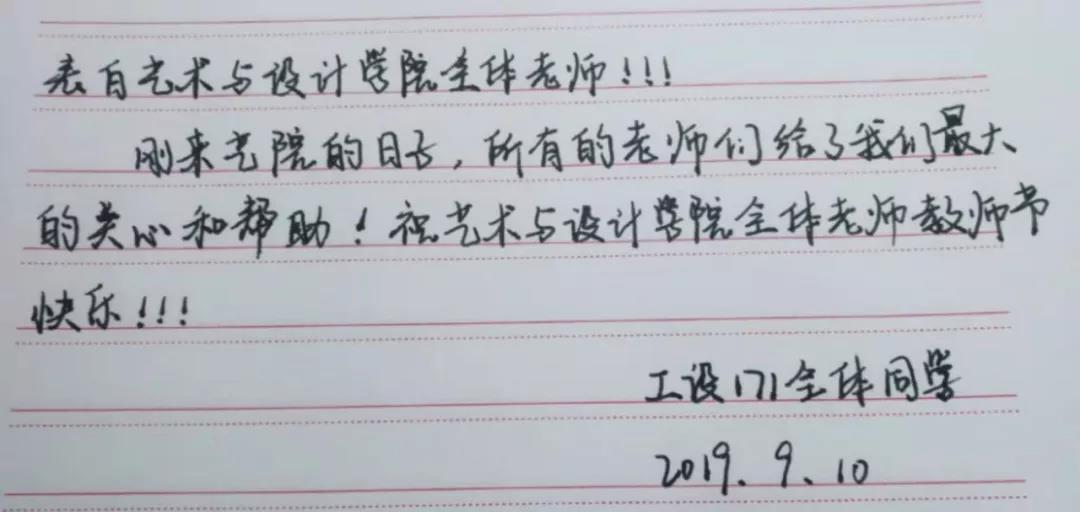 表白艺术与设计学院全体老师!!!
刚来艺院的日子,所有的老师们给了我们最大
的关心和帮助!祝艺术与设计学院全体老师教师节
快乐!!!
工设171全体同学
2019.9.10